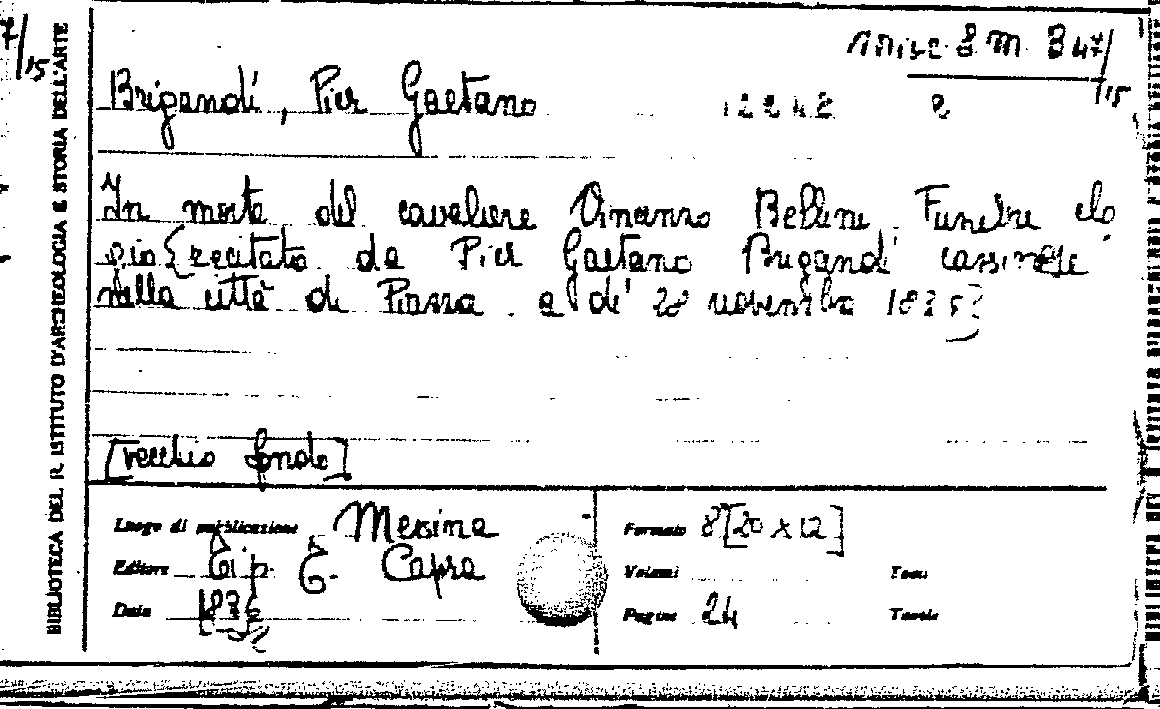 7/15
BIBLIOTECA DEL R. ISTITUTO D'ARCHEOLOGIA E STORIA DELL'ARTE
Misc 8 m B 47/15
Brigandí, Pier Gaetano 12242 2
In morte del cavaliere Vincenzo Bellini Funebre elo
gio [recitato da Pier Gaetano Brigandí cassinese
nella città di Piazza a dí 28 novembre 1835]
[vecchio fondo]
Luogo di pubblicazione Messina
Editore Tip. G. Capra
Data
Formato 8 [20 x 12]
Volumi Tomi
Pagine 24 Tavole